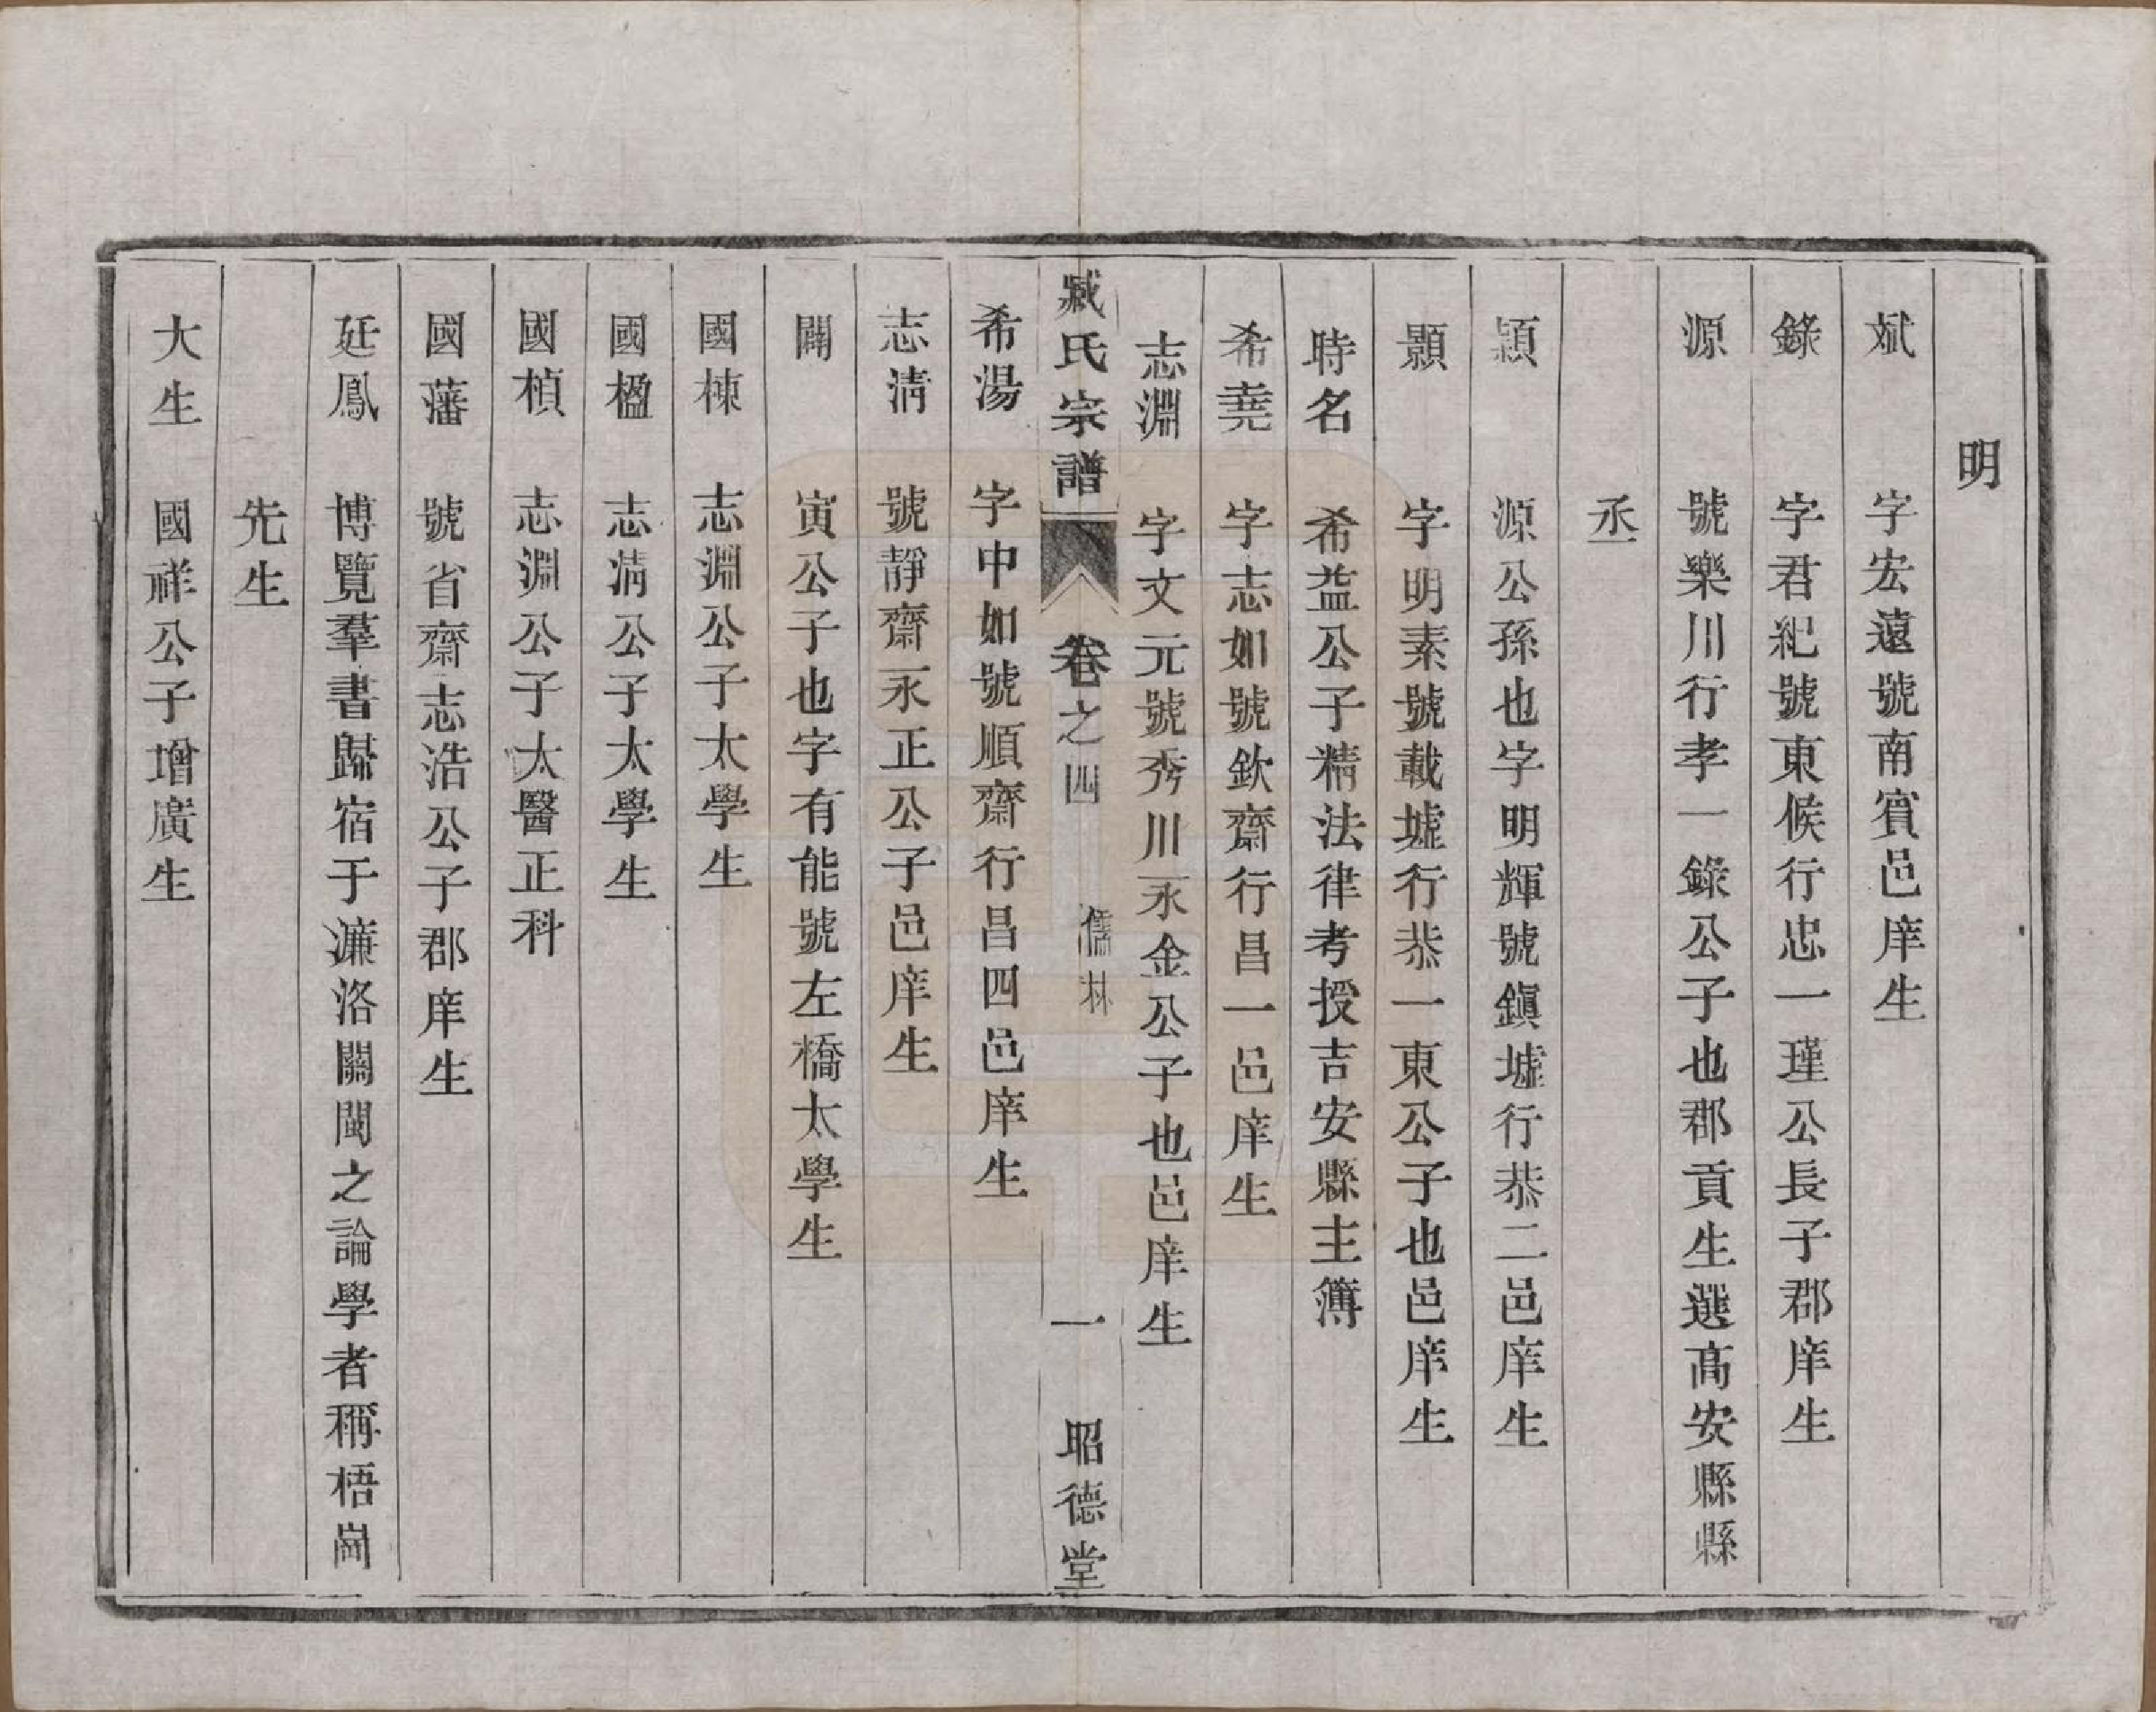 明
斌　字宏遠號南賓邑庠生
錄　字君紀號東候行忠一瑾公長子郡庠生
源　號樂川行孝一錄公子也郡貢生選高安縣縣
丞
穎　源公孫也字明輝號鎭墟行恭二邑庠生
顥　字明素號載墟行恭一東公子也邑庠生
時名　希益公子精法律考授吉安縣主簿
希堯　字志如號欽齋行昌一邑庠生
志淵　字文元號秀川永金公子也邑庠生
臧氏宗譜　卷之四　儒林　一　昭德堂
希湯　字中如號順齋行昌四邑庠生
志淸　號靜齋永正公子邑庠生
闢　寅公子也字有能號左橋太學生
國棟　志淵公子太學生
國楹　志淸公子太學生
國楨　志淵公子太醫正科
國藩　號省齋志浩公子郡庠生
廷鳳　博覽羣書歸宿于濂洛關閩之論學者稱梧崗
先生
大生　國祥公子增廣生